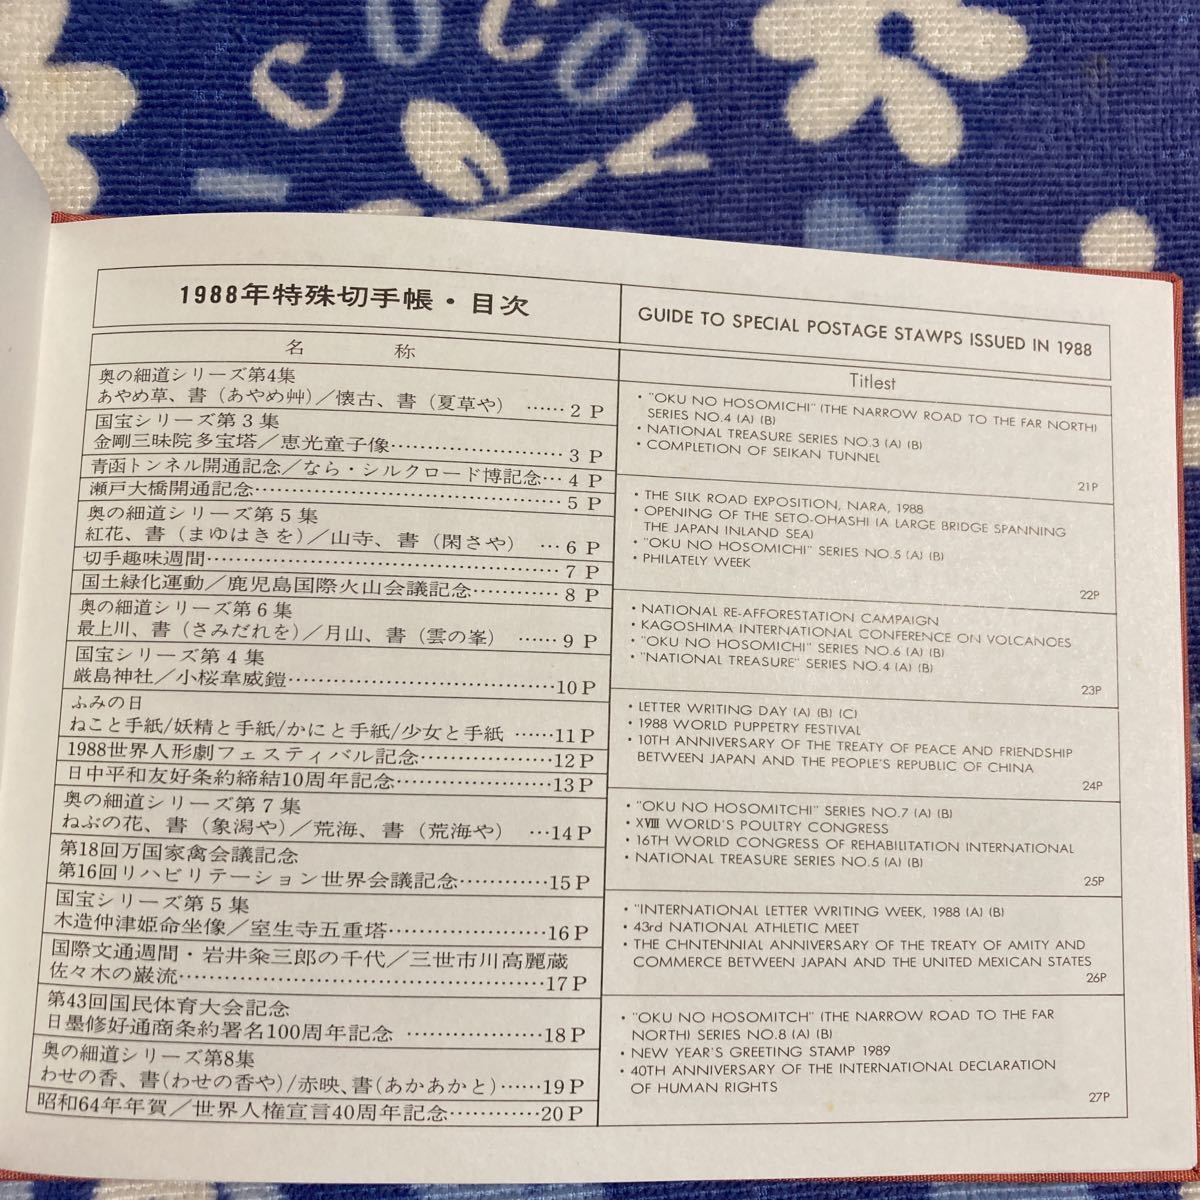 1988年特殊切手帳・目次
名 称
奥の細道シリーズ第4集
あやめ草、書（あやめ艸）／懐古、書（夏草や） ……2 P
国宝シリーズ第3集
金剛三昧院多宝塔／恵光童子像……………………3 P
青函トンネル開通記念／なら・シルクロード博記念…4 P
瀬戸大橋開通記念……………………………………5 P
奥の細道シリーズ第5集
紅花、書（まゆはきを）／山寺、書（閑さや） …6 P
切手趣味週間…………………………………………7 P
国土緑化運動／鹿児島国際火山会議記念…………8 P
奥の細道シリーズ第6集
最上川、書（さみだれを）／月山、書（雲の峯） ……9 P
国宝シリーズ第4集
厳島神社／小桜韋威鎧………………………………10P
ふみの日
ねこと手紙/妖精と手紙/かにと手紙/少女と手紙 ……11P
1988世界人形劇フェスティバル記念………………12P
日中平和友好条約締結10周年記念…………………13P
奥の細道シリーズ第7集
ねぶの花、書（象潟や）／荒海、書（荒海や） …14P
第18回万国家禽会議記念
第16回リハビリテーション世界会議記念…………15P
国宝シリーズ第5集
木造仲津姫命坐像／室生寺五重塔…………………16P
国際文通週間・岩井粂三郎の千代／三世市川高麗蔵
佐々木の巌流…………………………………………17P
第43回国民体育大会記念
日墨修好通商条約署名100周年記念 ………………18P
奥の細道シリーズ第8集
わせの香、書(わせの香や)/赤映、書(あかあかと)……19P
昭和64年年賀／世界人権宣言40周年記念…………20P
GUIDE TO SPECIAL POSTAGE STAWPS ISSUED IN 1988
Titlest
• "OKU NO HOSOMICHI" (THE NARROW ROAD TO THE FAR NORTH)
SERIES NO.4 (A) (B)
• NATIONAL TREASURE SERIES NO.3 (A) (B)
• COMPLETION OF SEIKAN TUNNEL
21P
• THE SILK ROAD EXPOSITION, NARA, 1988
• OPENING OF THE SETO-OHASHI (A LARGE BRIDGE SPANNING
THE JAPAN INLAND SEA)
• "OKU NO HOSOMICHI" SERIES NO.5 (A) (B)
• PHILATELY WEEK
22P
• NATIONAL RE-AFFORESTATION CAMPAIGN
• KAGOSHIMA INTERNATIONAL CONFERENCE ON VOLCANOES
• "OKU NO HOSOMICHI" SERIES NO.6 (A) (B)
• "NATIONAL TREASURE" SERIES NO.4 (A) (B)
23P
• LETTER WRITING DAY (A) (B) (C)
• 1988 WORLD PUPPETRY FESTIVAL
• 10TH ANNIVERSARY OF THE TREATY OF PEACE AND FRIENDSHIP
BETWEEN JAPAN AND THE PEOPLE'S REPUBLIC OF CHINA
24P
• "OKU NO HOSOMITCHI" SERIES NO.7 (A) (B)
• XVIII WORLD'S POULTRY CONGRESS
• 16TH WORLD CONGRESS OF REHABILITATION INTERNATIONAL
• NATIONAL TREASURE SERIES NO.5 (A) (B)
25P
• "INTERNATIONAL LETTER WRITING WEEK, 1988 (A) (B)
• 43rd NATIONAL ATHLETIC MEET
• THE CHNTENNIAL ANNIVERSARY OF THE TREATY OF AMITY AND
COMMERCE BETWEEN JAPAN AND THE UNITED MEXICAN STATES
26P
• "OKU NO HOSOMITCH" (THE NARROW ROAD TO THE FAR
NORTH) SERIES NO.8 (A) (B)
• NEW YEAR'S GREETING STAMP 1989
• 40TH ANNIVERSARY OF THE INTERNATIONAL DECLARATION
OF HUMAN RIGHTS
27P